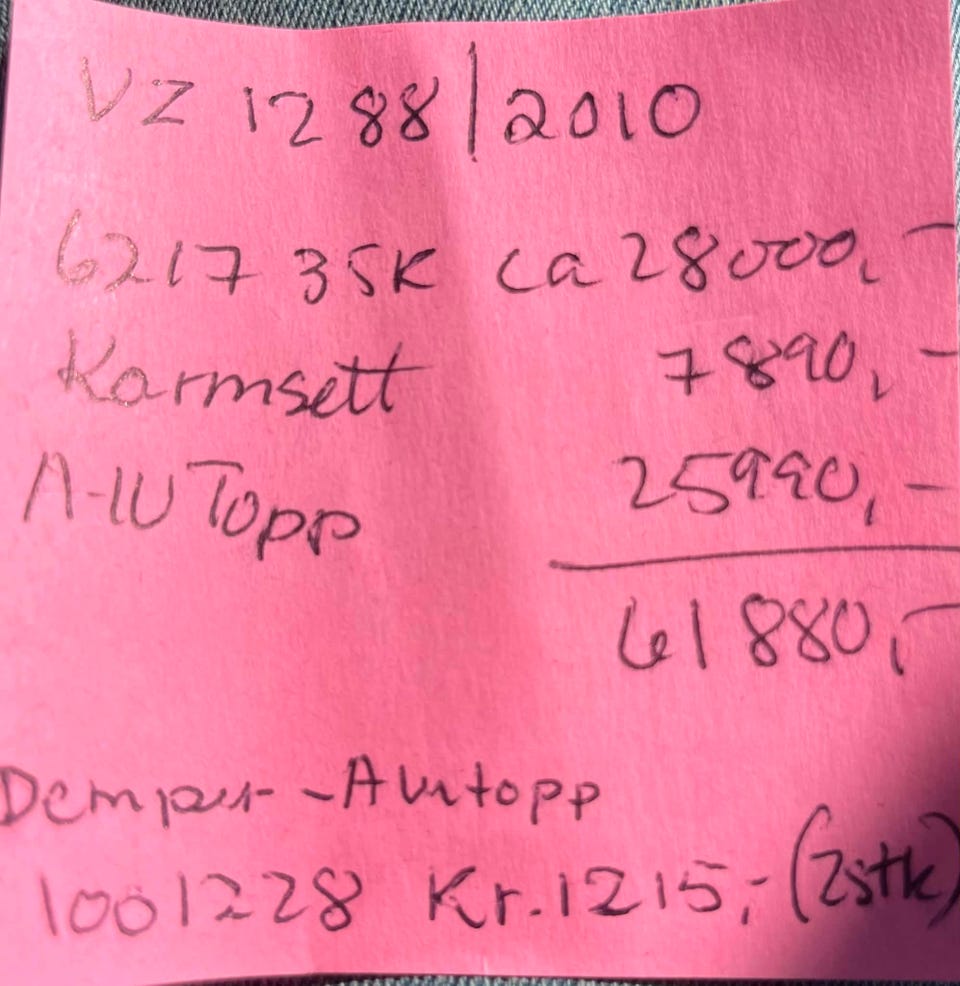 VZ 1288/2010
6217 35K ca 28000,-
Karmsett 7890,-
A-lu Topp 25990,-
61880,-
Demper - Alutopp
1001228 Kr. 1215,- (2stk)